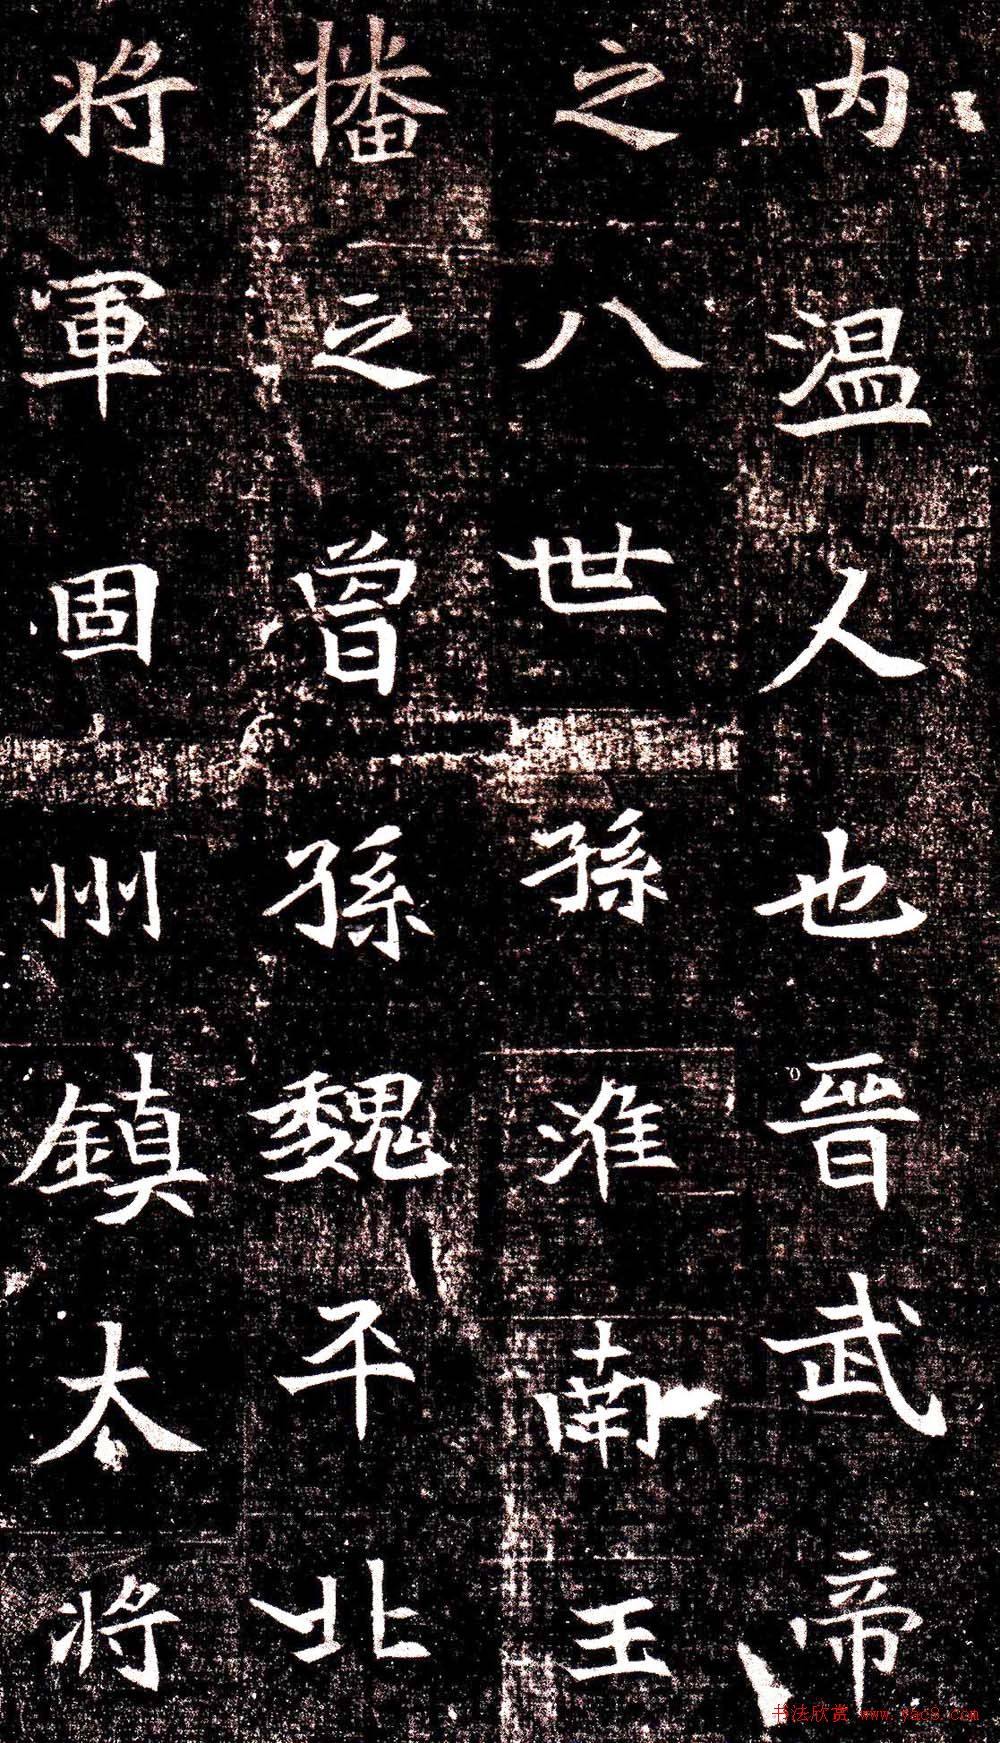 内温人也晋武帝
之八世孫淮南王
播之曾孫魏平北
将軍固州鎮大将
书法欣赏 www.yac8.com